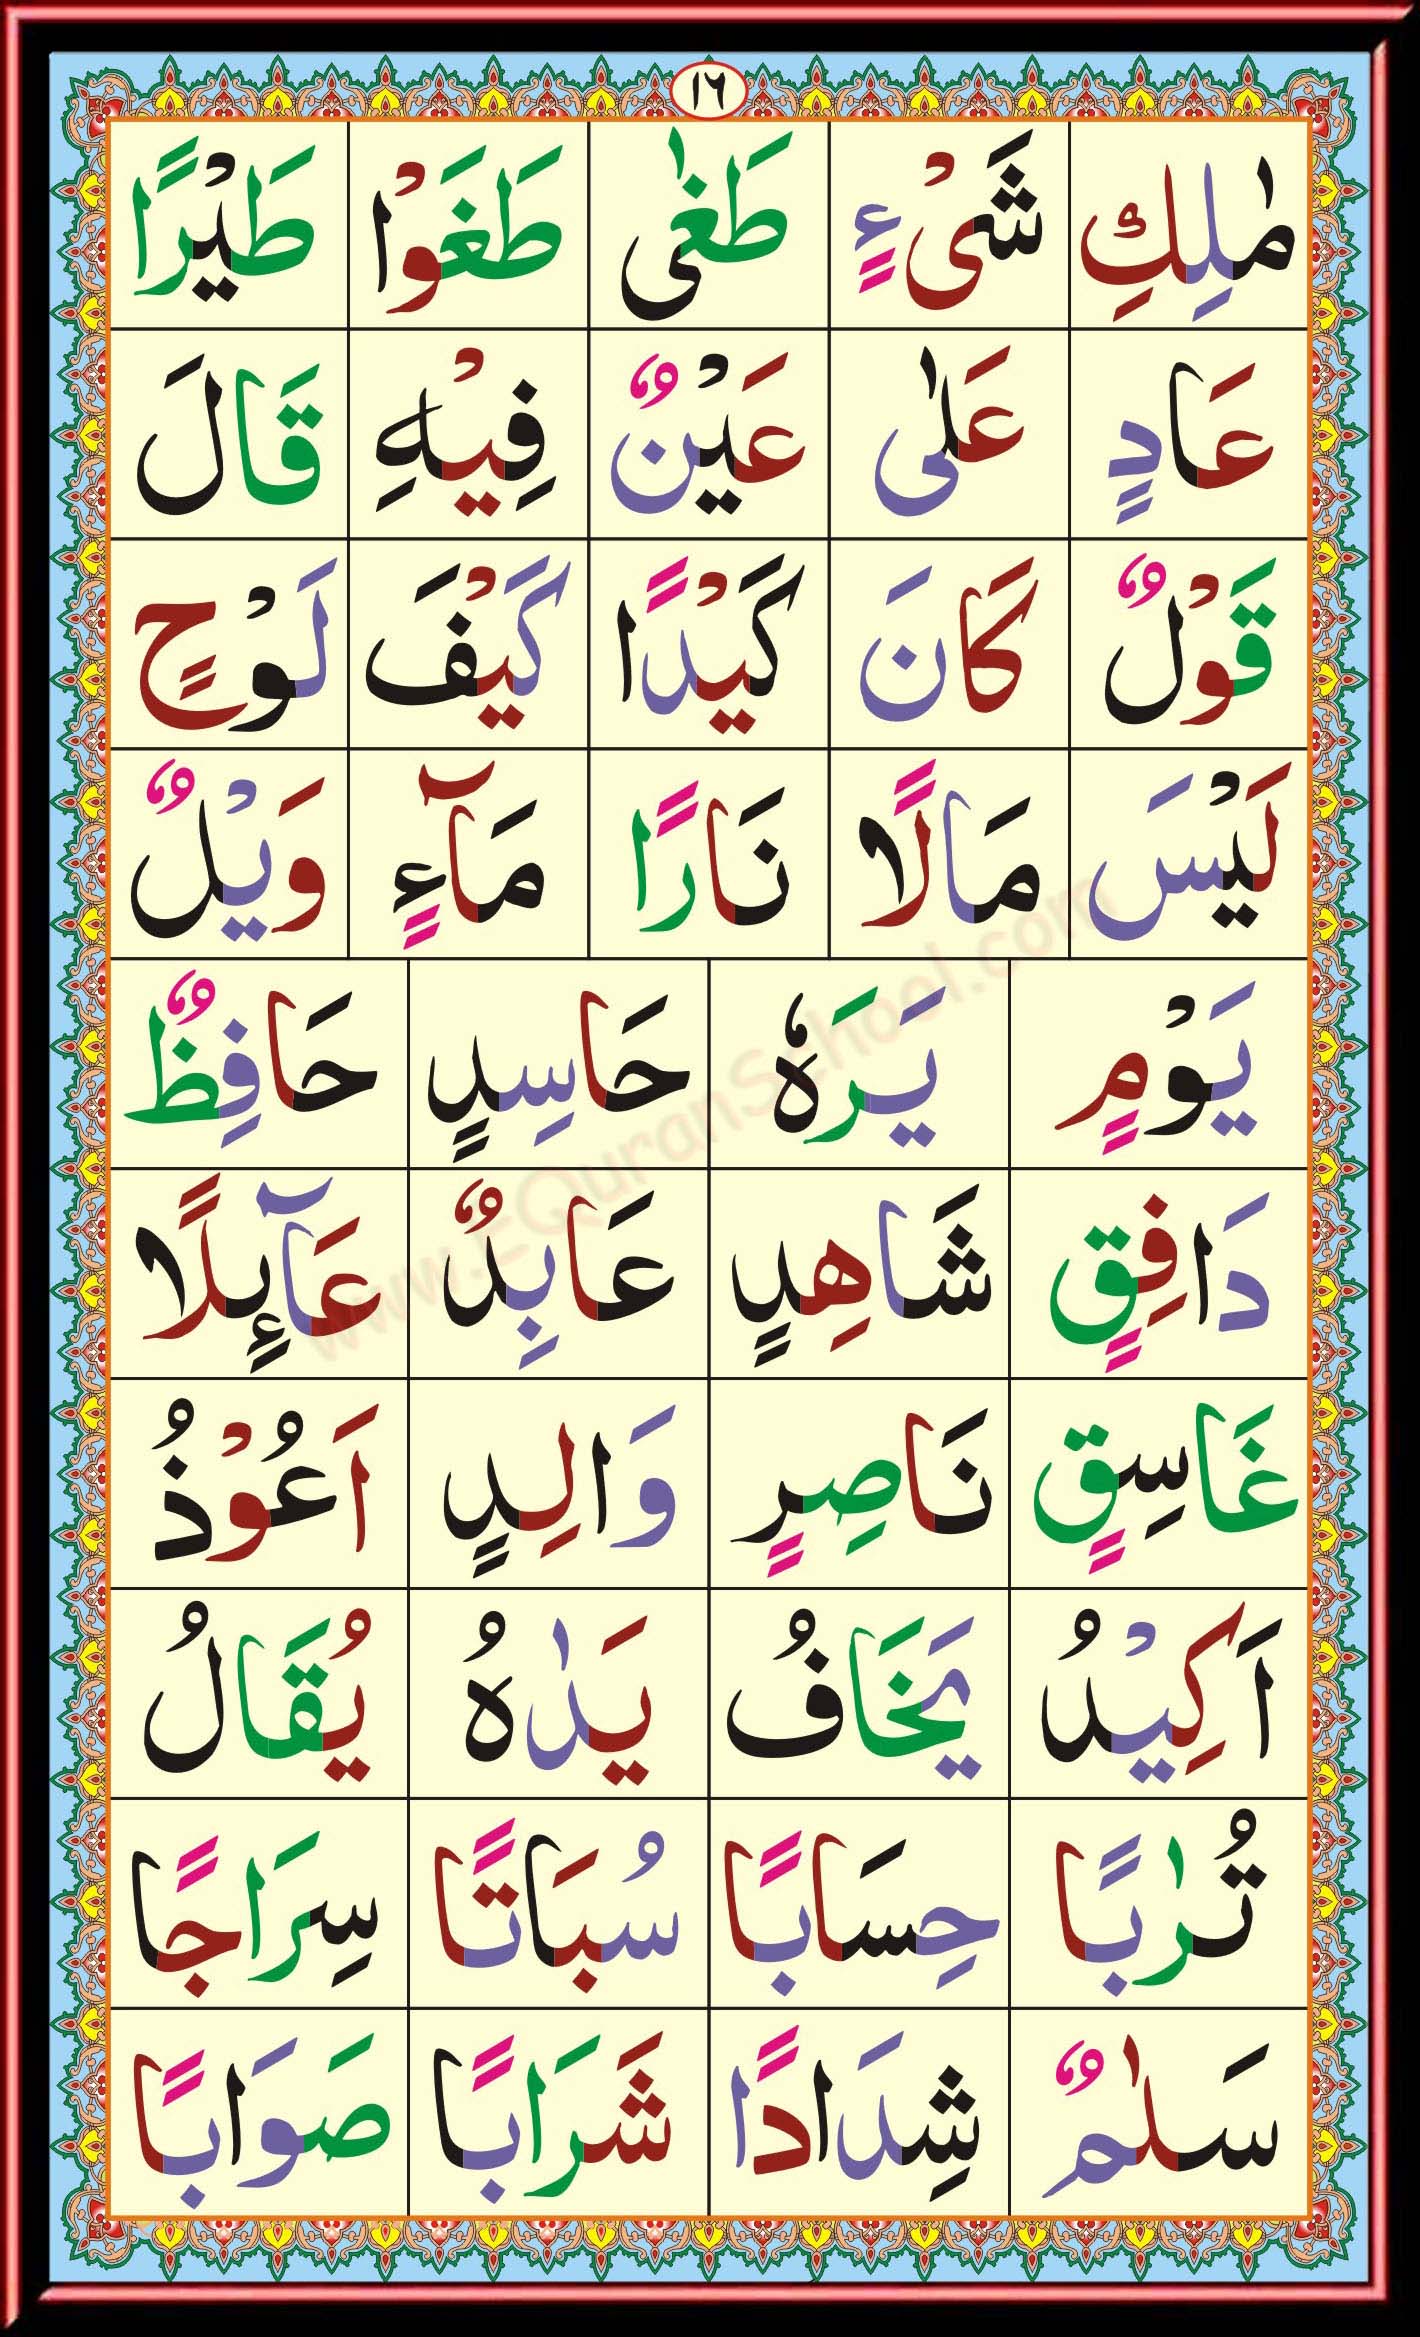 ١٦
مٰلِكِ شَیْءٍ طَغٰی طَغَوْا طَيْرًا
عَادٍ عَلٰی عَيْنٌ فِيْهِ قَالَ
قَوْلٌ كَانَ كَيْدًا كَيْفَ لَوْحٍ
لَيْسَ مَالًا نَارًا مَآءٍ وَيْلٌ
يَوْمٍ يَرَهٗ حَاسِدٍ حَافِظٌ
دَافِقٍ شَاهِدٍ عَابِدٌ عَآئِلًا
غَاسِقٍ نَاصِرٍ وَالِدٍ اَعُوْذُ
اَكِيْدُ يَخَافُ يَدٰهُ يُقَالُ
تُرٰبًا حِسَابًا سُبَاتًا سِرَاجًا
سَلٰمٌ شِدَادًا شَرَابًا صَوَابًا
www.EQuranSchool.com